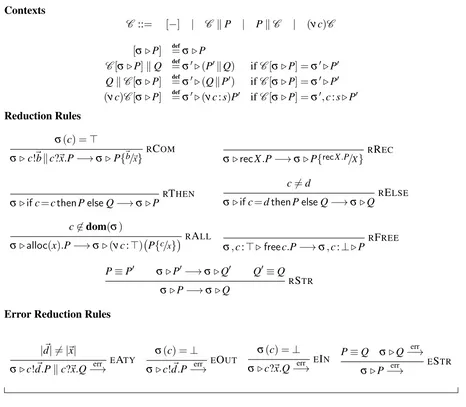 Contexts
𝒞 ::= [−] | 𝒞 ∥ P | P ∥ 𝒞 | (ν c)𝒞
[σ ▹ P] def= σ ▹ P
𝒞[σ ▹ P] ∥ Q def= σ′ ▹ (P′ ∥ Q) if 𝒞[σ ▹ P] = σ′ ▹ P′
Q ∥ 𝒞[σ ▹ P] def= σ′ ▹ (Q ∥ P′) if 𝒞[σ ▹ P] = σ′ ▹ P′
(ν c)𝒞[σ ▹ P] def= σ′ ▹ (ν c:s)P′ if 𝒞[σ ▹ P] = σ′, c:s ▹ P′
Reduction Rules
σ(c) = ⊤
σ ▹ c!b⃗ ∥ c?x⃗.P ⟶ σ ▹ P{b⃗/x⃗} RCOM
σ ▹ rec X.P ⟶ σ ▹ P{rec X.P/X} RREC
σ ▹ if c=c then P else Q ⟶ σ ▹ P RTHEN
c ≠ d
σ ▹ if c=d then P else Q ⟶ σ ▹ Q RELSE
c ∉ dom(σ)
σ ▹ alloc(x).P ⟶ σ ▹ (ν c:⊤)(P{c/x}) RALL
σ, c:⊤ ▹ free c.P ⟶ σ, c:⊥ ▹ P RFREE
P ≡ P′ σ ▹ P′ ⟶ σ ▹ Q′ Q′ ≡ Q
σ ▹ P ⟶ σ ▹ Q RSTR
Error Reduction Rules
|d⃗| ≠ |x⃗|
σ ▹ c!d⃗.P ∥ c?x⃗.Q err⟶ EATY
σ(c) = ⊥
σ ▹ c!d⃗.P err⟶ EOUT
σ(c) = ⊥
σ ▹ c?x⃗.Q err⟶ EIN
P ≡ Q σ ▹ Q err⟶
σ ▹ P err⟶ ESTR